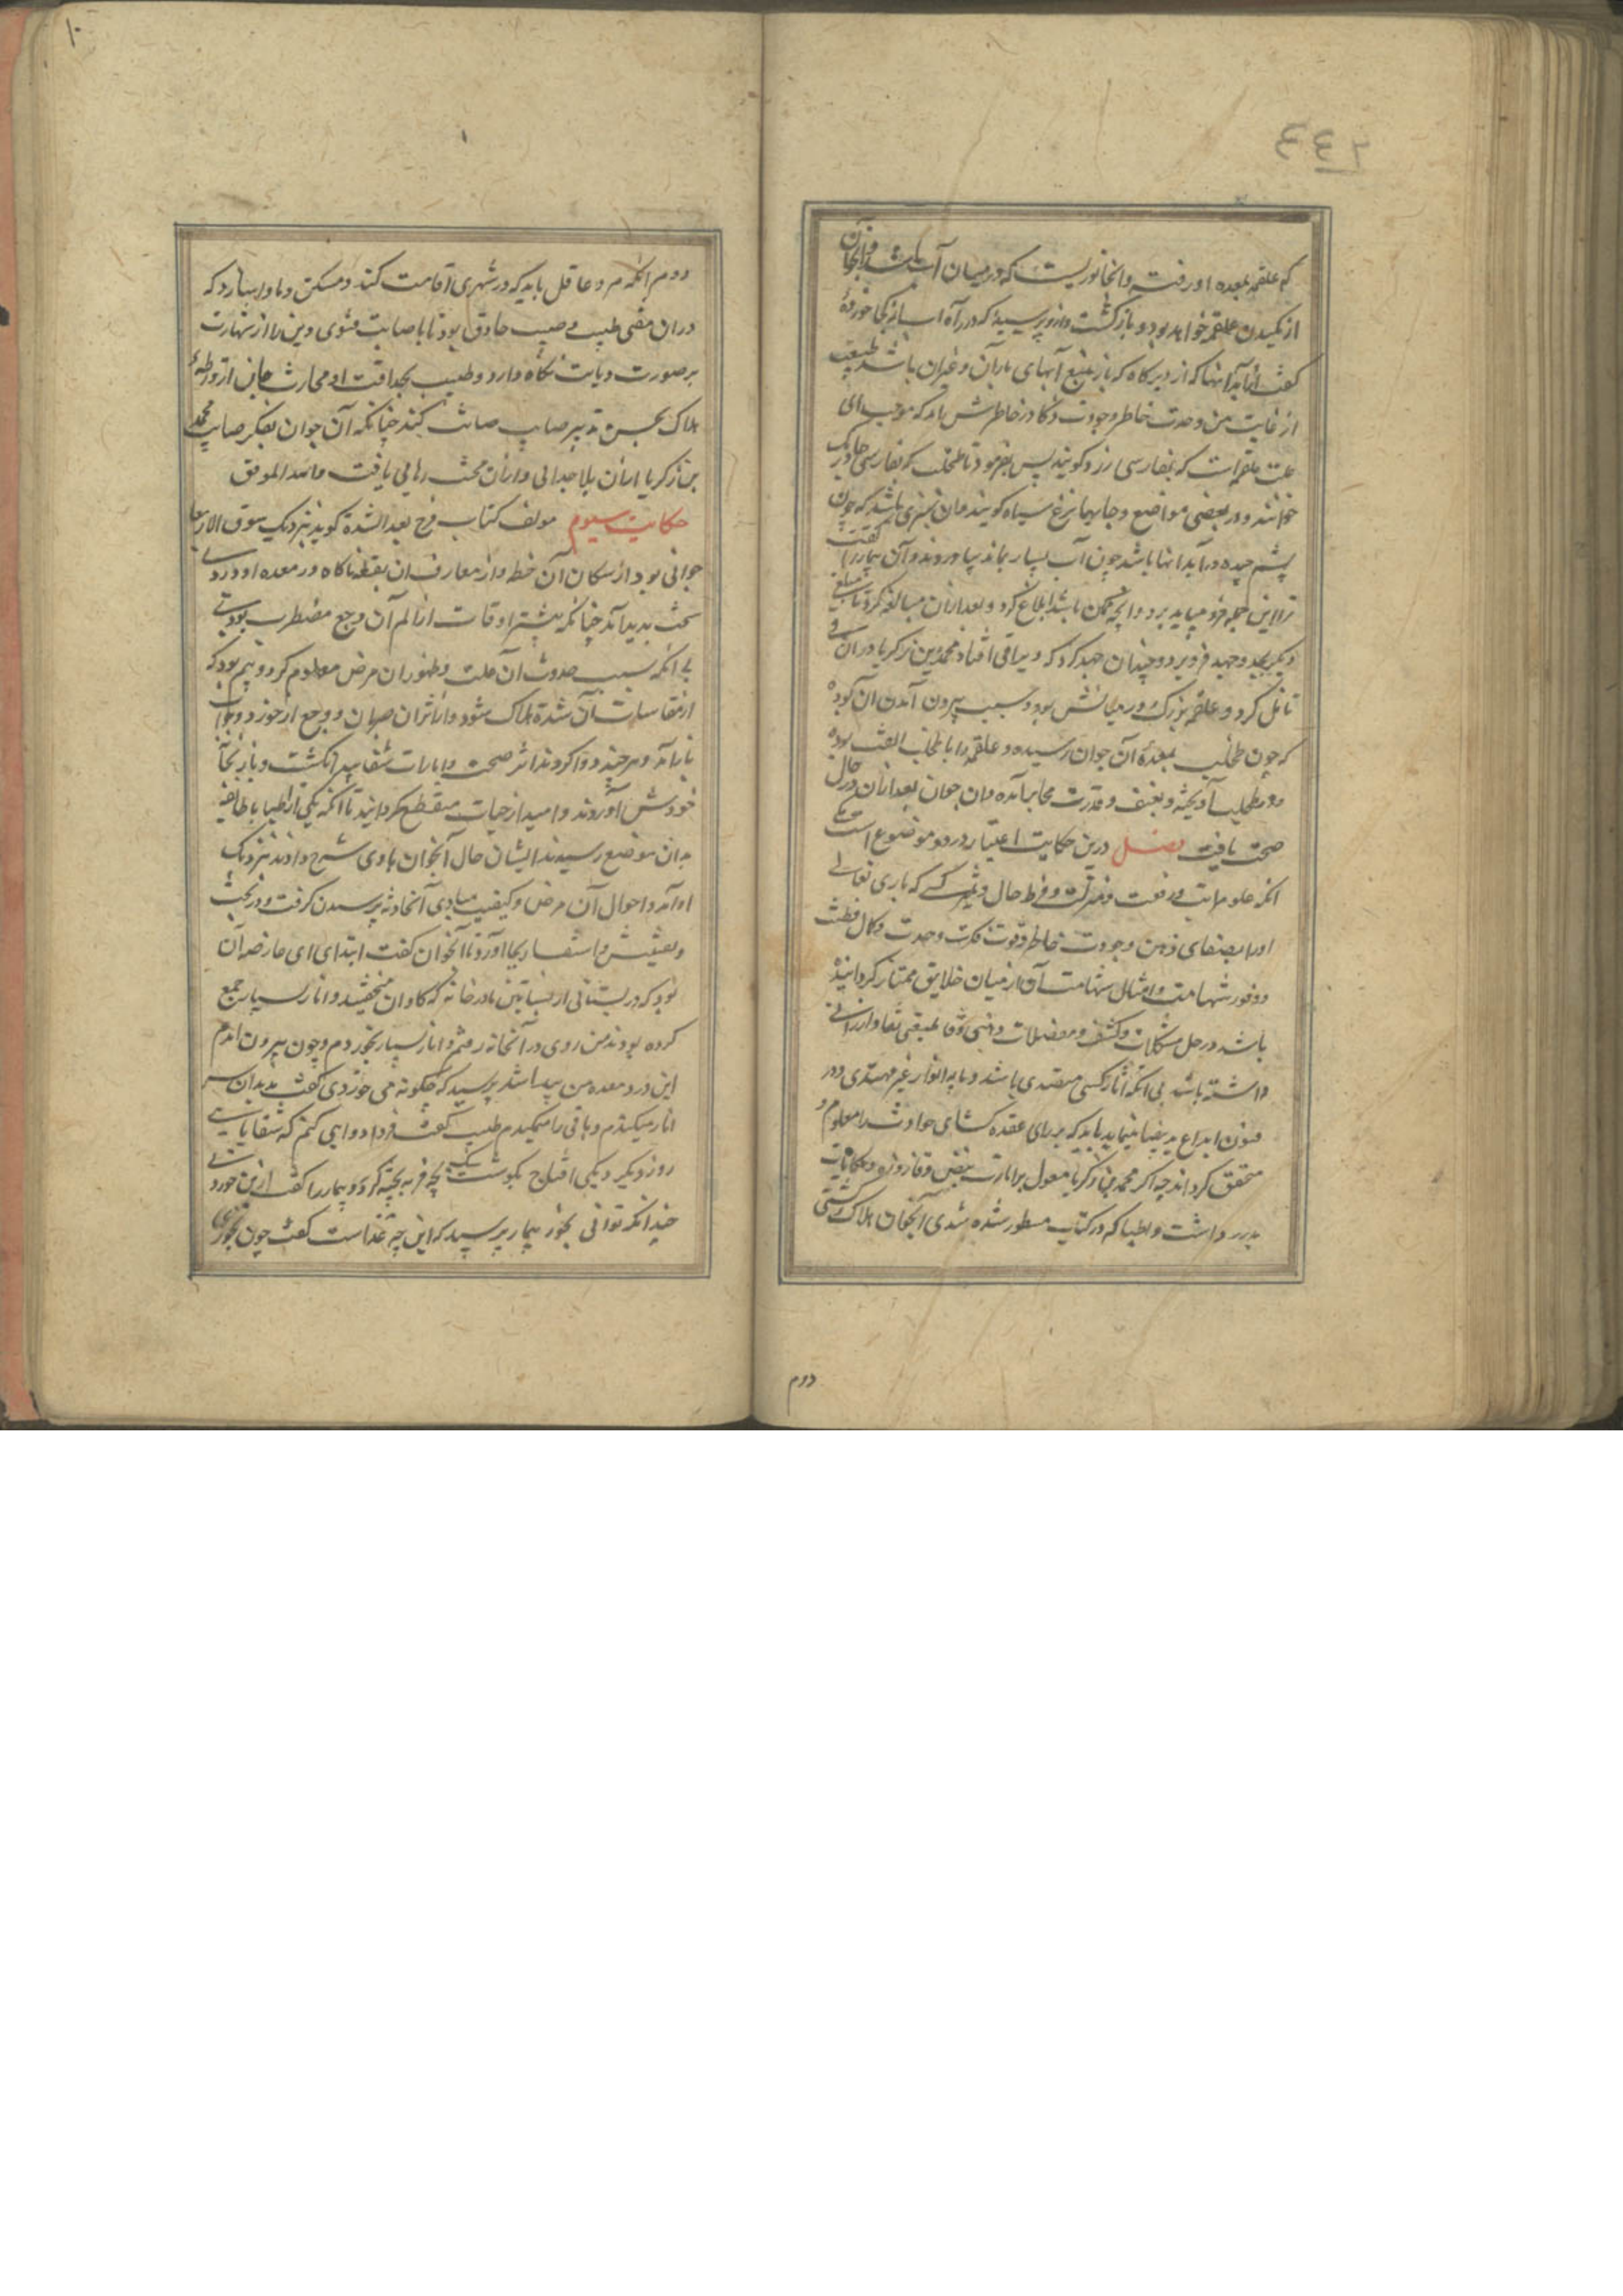 ٤٤٦
که علقمه بمعده او رفته و انجانوریست که در میان آب باشد و آنجوان
از مکیدن علقمه خواهد بود و بازگشت و ازو پرسید که در راه اب از کجا خورده
کفت از ابدانها که از دیرگاه که باز منبع آبهای باران و غیران باشد طبیب
از غایت من وحدت خاطر و جودت ذکا در خاطرش امد که موجب ای
علت علقمه است که بفارسی زرو کویند پس بفرمود تا طحلب که بفارسی جامه بک
خوانند و در بعضی مواضع و جایها بزغ سیاه کویند وان بسبزی باشد که چون
پشم چیده در آبدانها باشد چون آب بسیار بماند بیاوردند و آن بیمار را کفت
ترا این جمله فرو میباید برد و انچه ممکن باشد ابلاغ کرد و بعد ازان مبالغه کرد تا مبلغی
دیگر بجد و جهد فرو برد و چندان جهد کرد که ویرا قی افتاد محمد بن زکریا دران قی
تامل کرد و علقمه بزرک در میانش بود و سبب بیرون آمدن آن بوده
که چون طحلب بمعده آن جوان رسیده و علقمه را با طحلب الفت بوده
و در طحلب آویخته و بعنف و قدرت محابر آمده وان جوان بعد ازان در حال
صحت یافت فصل درین حکایت اعتبار در دو موضوع است یکی
انکه علو مراتب و رفعت و منزلت و فرط حال و ثمر کسی که باری تعالی
اورا بصفای ذهن و جودت خاطر و قوت فکرت و حدت و کمال فطنت
و وفور شهامت و امثال شهامت آن از میان خلایق ممتاز کردانیده
باشد در حل مشکلات و کشف و معضلات و ذهنی وقا طبعی نقاد ارزانی
داشته باشد بی انکه اثار کسی مقتدی باشد و یا به انوار غیر مهتدی در
فنون ابداع ید بیضا نماید باید که برای عقده کشای حوادث را معلوم و
محقق کرداند چه اکر محمد بن زکریا معول بر امارت نبض و قاروره و حکایات
پدر داشت و اطبا که در کتاب مسطور شده شدی آنجوان هلاک کشتی
دوم
۱۰
دوم انکه مرد عاقل باید که در شهری اقامت کند و مسکن و ماوا سازد که
دران مفتی طبیب مصیب حاذق بود تا باصابت فتوی دین را از شهارت
بر صورت دیانت نکاه دارد و طبیب بحذاقت او مجارت جان از ورطه
هلاک بحسن تدبیر صایب صیانت کند چنانکه آن جوان بفکر صایب محمد
بن زکریا ازان بلا جدائی و ازان محنت رهایی یافت والله الموفق
حکایت سیوم مولف کتاب فرج بعد الشدة کوید بنزدیک سوق الاربعا
جوانی بود از سکان آن خط و از معارف ان بقعه ناکاه در معده او دردی
سخت پدید آمد چنانکه بیشتر اوقات از الم آن وجع مضطرب بودی
بی انکه سبب حدوث آن علت و ظهور ان مرض معلوم کردد و بیم بود که
از مقاسات آن شده هلاک شود و از اثر ان ضربان و وجع از خورد و خواب
باز آمد و هر چند دوا کردند اثر صحت و امارات شفا پیدا نکشت و باز بخانه
خودش آوردند و امید از حیات منقطع کردانید تا انکه یکی از اطبا با طایفه
بدان موضع رسیدند ایشان حال آنجوان با وی شرح دادند بنزدیک
او آمد و احوال آن مرض و کیفیت مبادی آنحادثه پرسیدن کرفت و در بحث
و تفتیش و استفسار بجا آورد تا آنجوان کفت ابتدای ای عارضه آن
بود که در بستانی از بساتین ما در خانه که کاوان میخفتید و انار بسیار جمع
کرده بودند من روی در آنخانه رفتم و انار بسیار بخوردم و چون بیرون امدم
این درد معده من پیدا شد پرسید که چکونه می خوردی کفت بدندان سر
انار میکندم و باقی را میمکیدم طبیب کفت فردا دوایی کنم که شفا یابی
روز دیکر دیکی اقلاج بکوشت سک بچه فربه پخته کرد و بیمار را کفت ازین خورد
چندانکه توانی بخور بیمار پرسید که این چه غذاست کفت چون بخوری